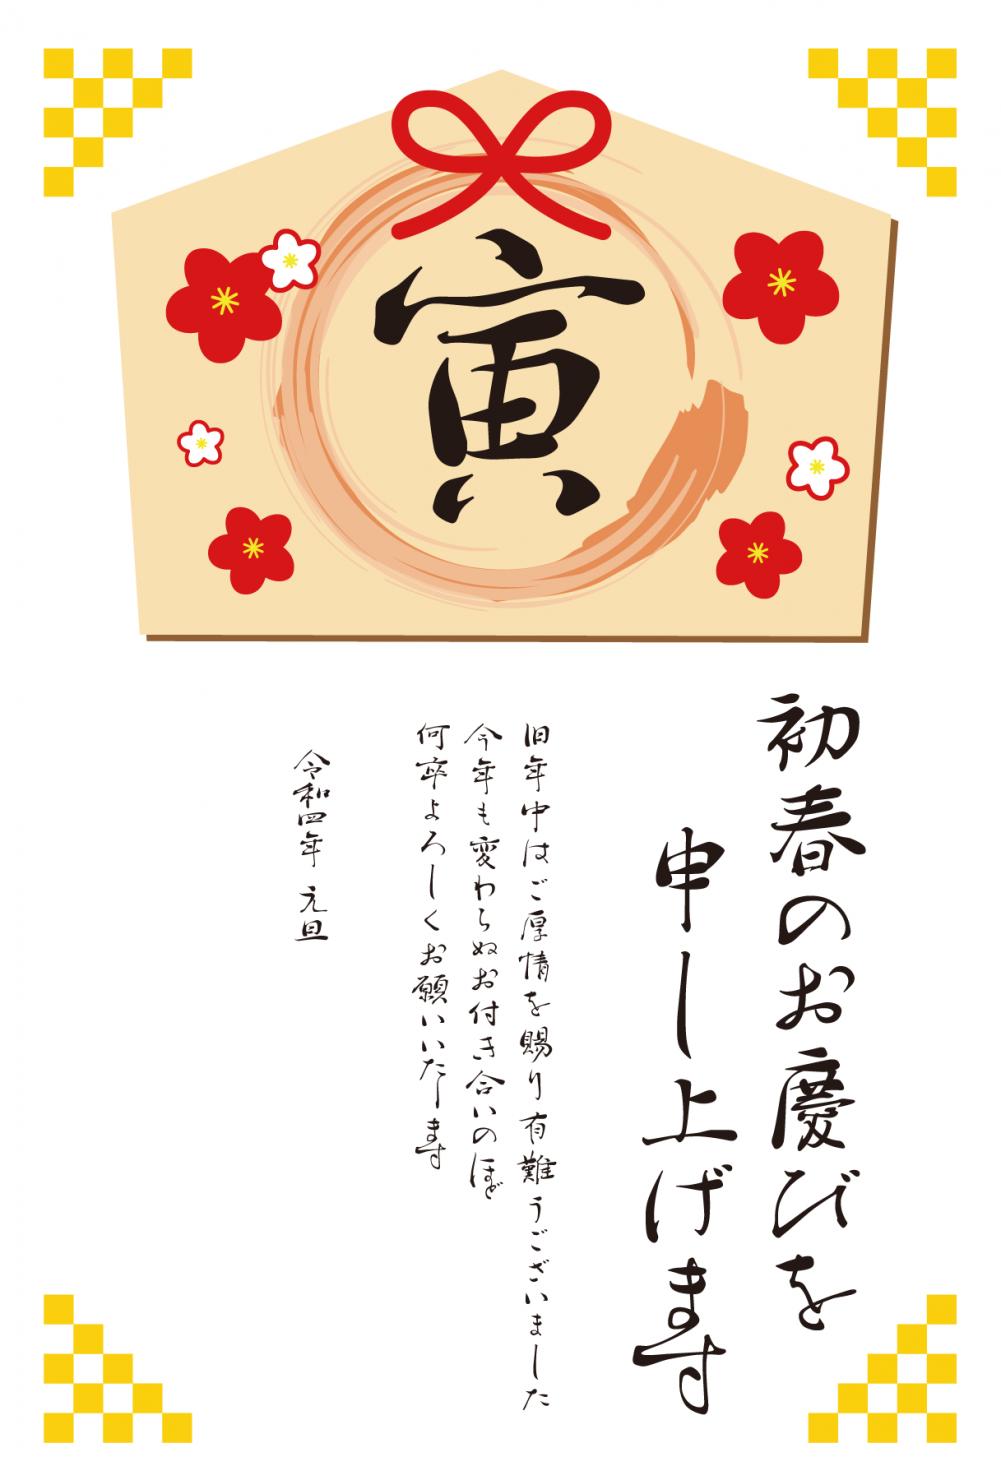 寅
初春のお慶びを
申し上げます
旧年中はご厚情を賜り有難うございました
今年も変わらぬお付き合いのほど
何卒よろしくお願いいたします
令和四年 元旦